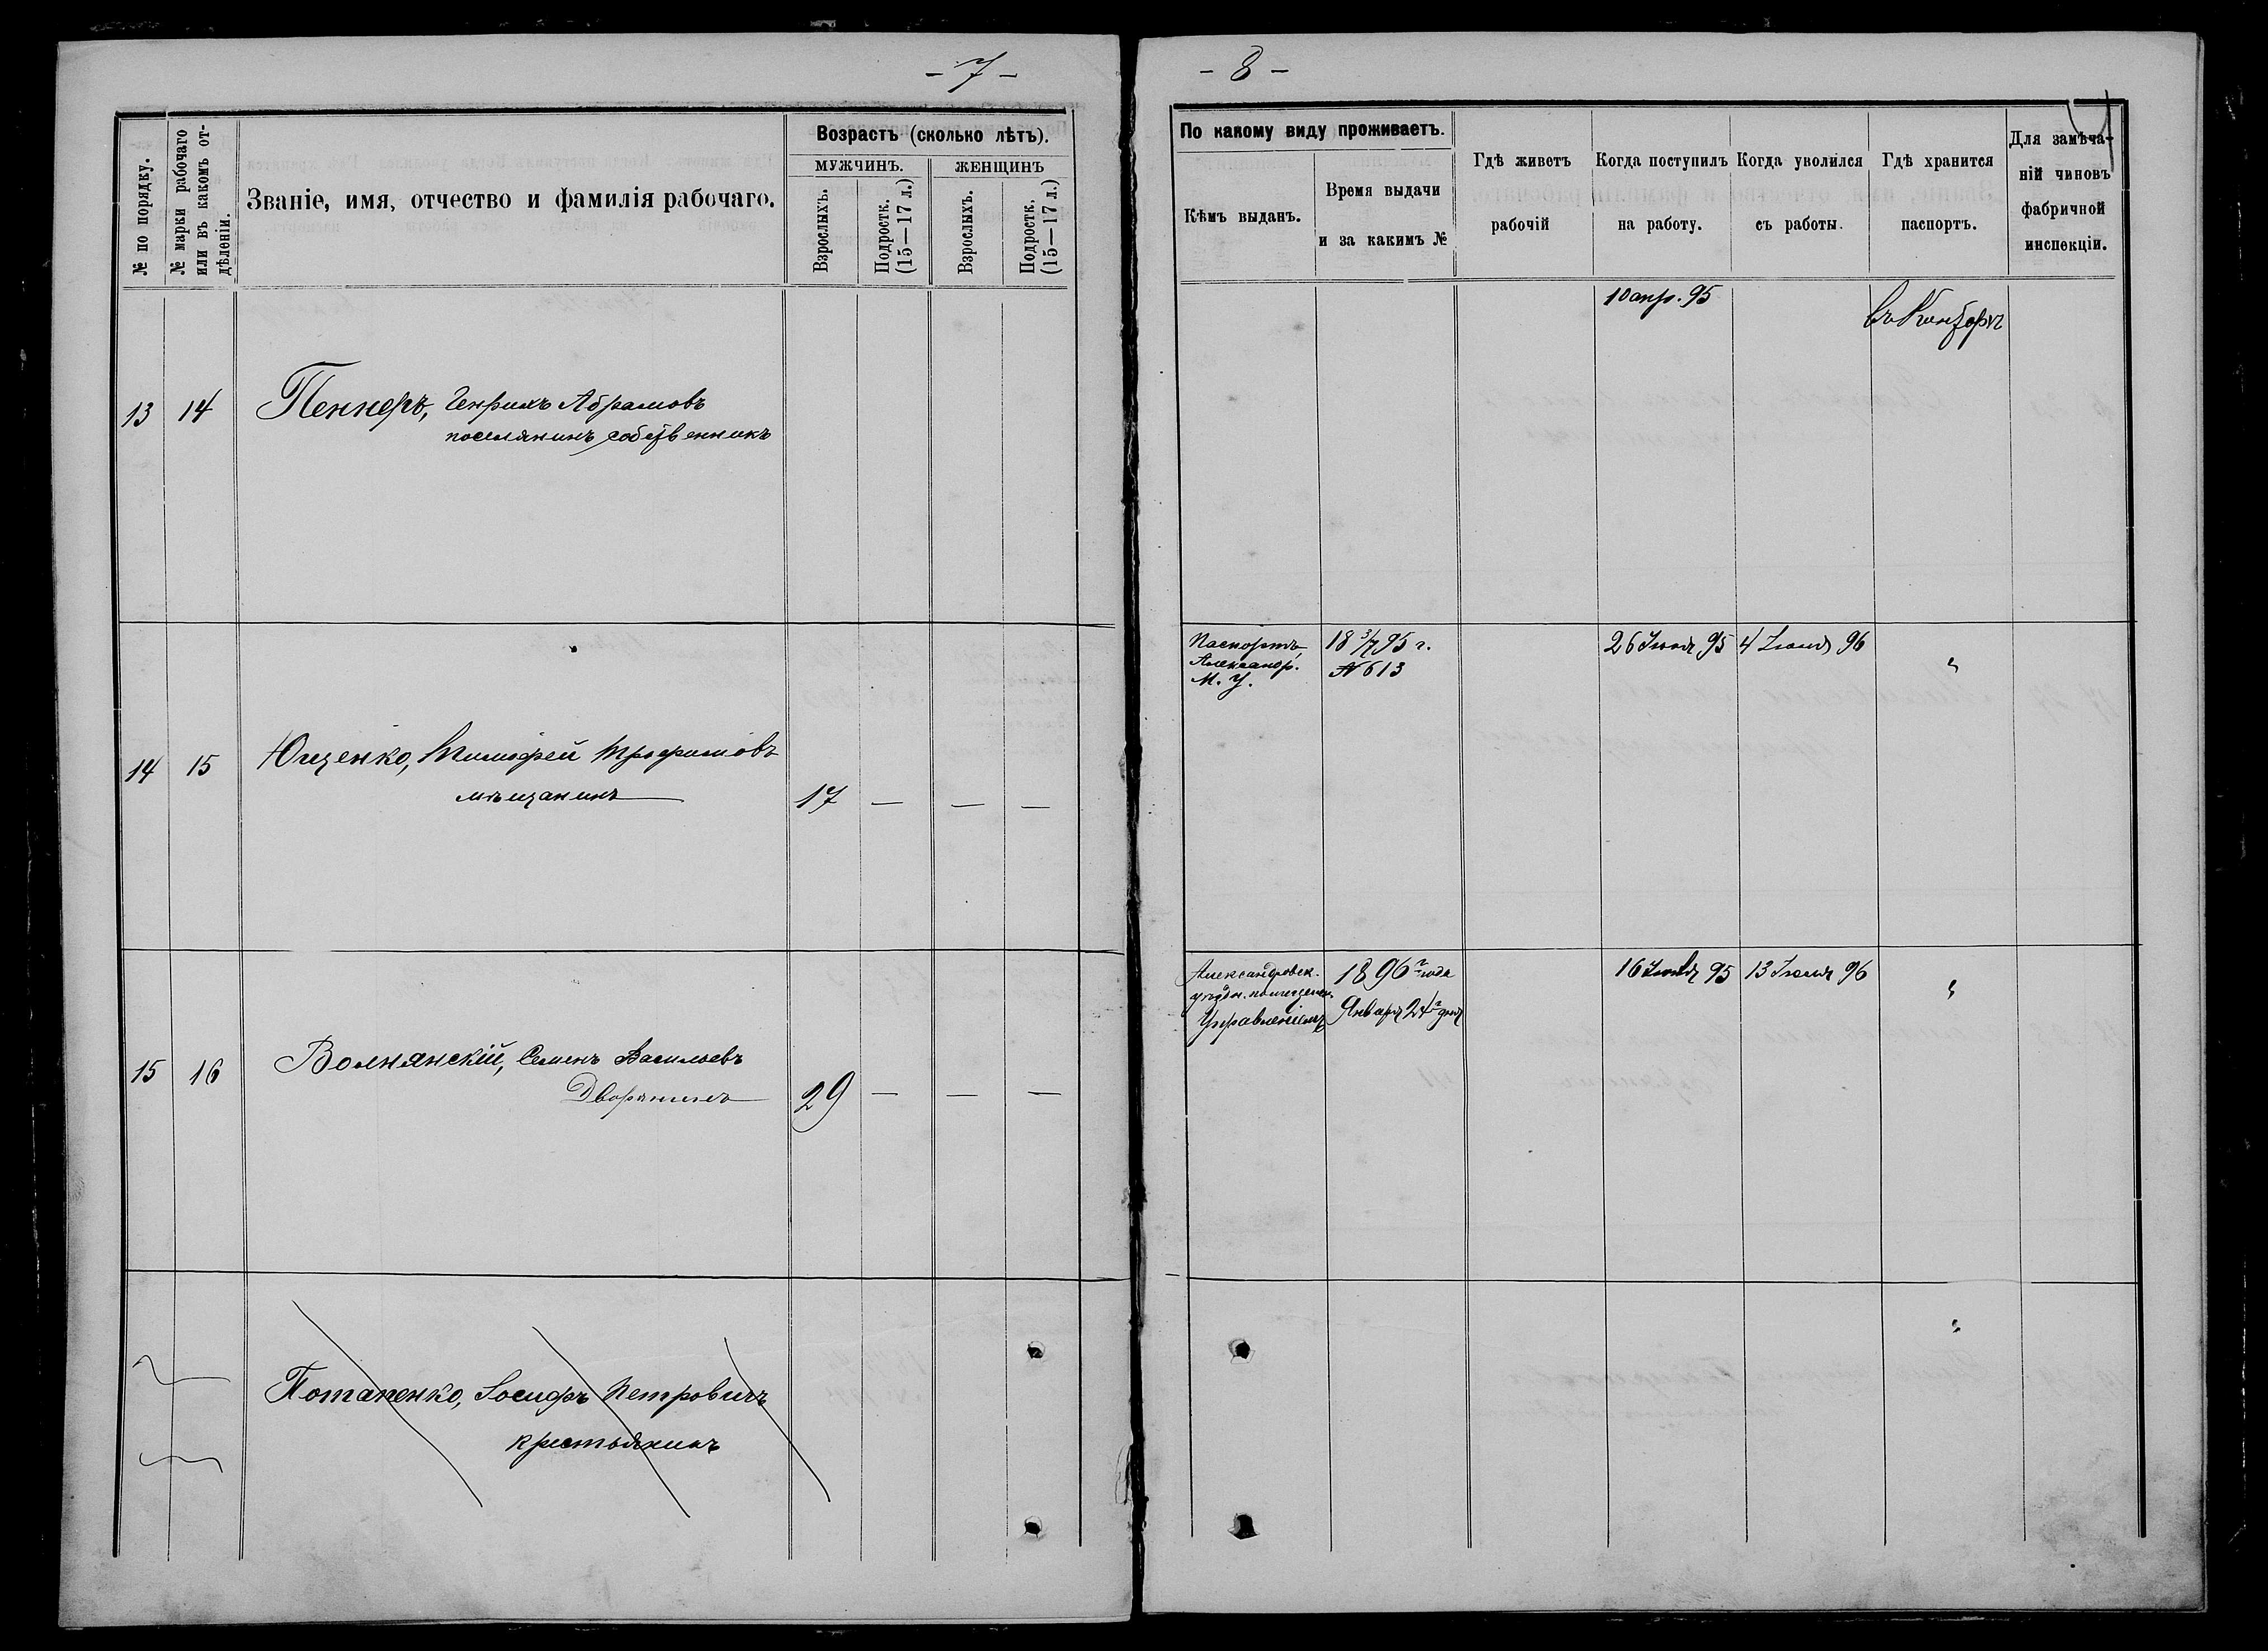 - 7 -
№ по порядку.
№ марки рабочаго
или въ какомъ от-
дѣленіи.
Званіе, имя, отчество и фамилія рабочаго.
Возрастъ (сколько лѣтъ).
МУЖЧИНЪ.
ЖЕНЩИНЪ
Взрослыхъ.
Подростк.
(15—17 л.)
Взрослыхъ.
Подростк.
(15—17 л.)
13 14 Пеннеръ, Генрихъ Абрамовъ
поселянинъ собственникъ
14 15 Ющенко, Тимофей Трофимовъ
мѣщанинъ 17 — — —
15 16 Волнянскій, Семенъ Васильевъ
Дворянинъ 29 — — —
Потапенко, Іосифъ Петровичъ
крестьянинъ
- 8 -
По какому виду проживаетъ.
Кѣмъ выданъ.
Время выдачи
и за какимъ №
Гдѣ живетъ
рабочій
Когда поступилъ
на работу.
Когда уволился
съ работы.
Гдѣ хранится
паспортъ.
Для замѣча-
ній чиновъ
фабричной
инспекціи.
10 апр. 95
Въ Конторѣ
Паспортъ, 18 3/7 95 г. 95 4 96 "
Александр. № 613
М. У.
Александровск. 1896 года 16 95 13 96 "
уѣздн.
Управленіемъ Января 24 дня
"